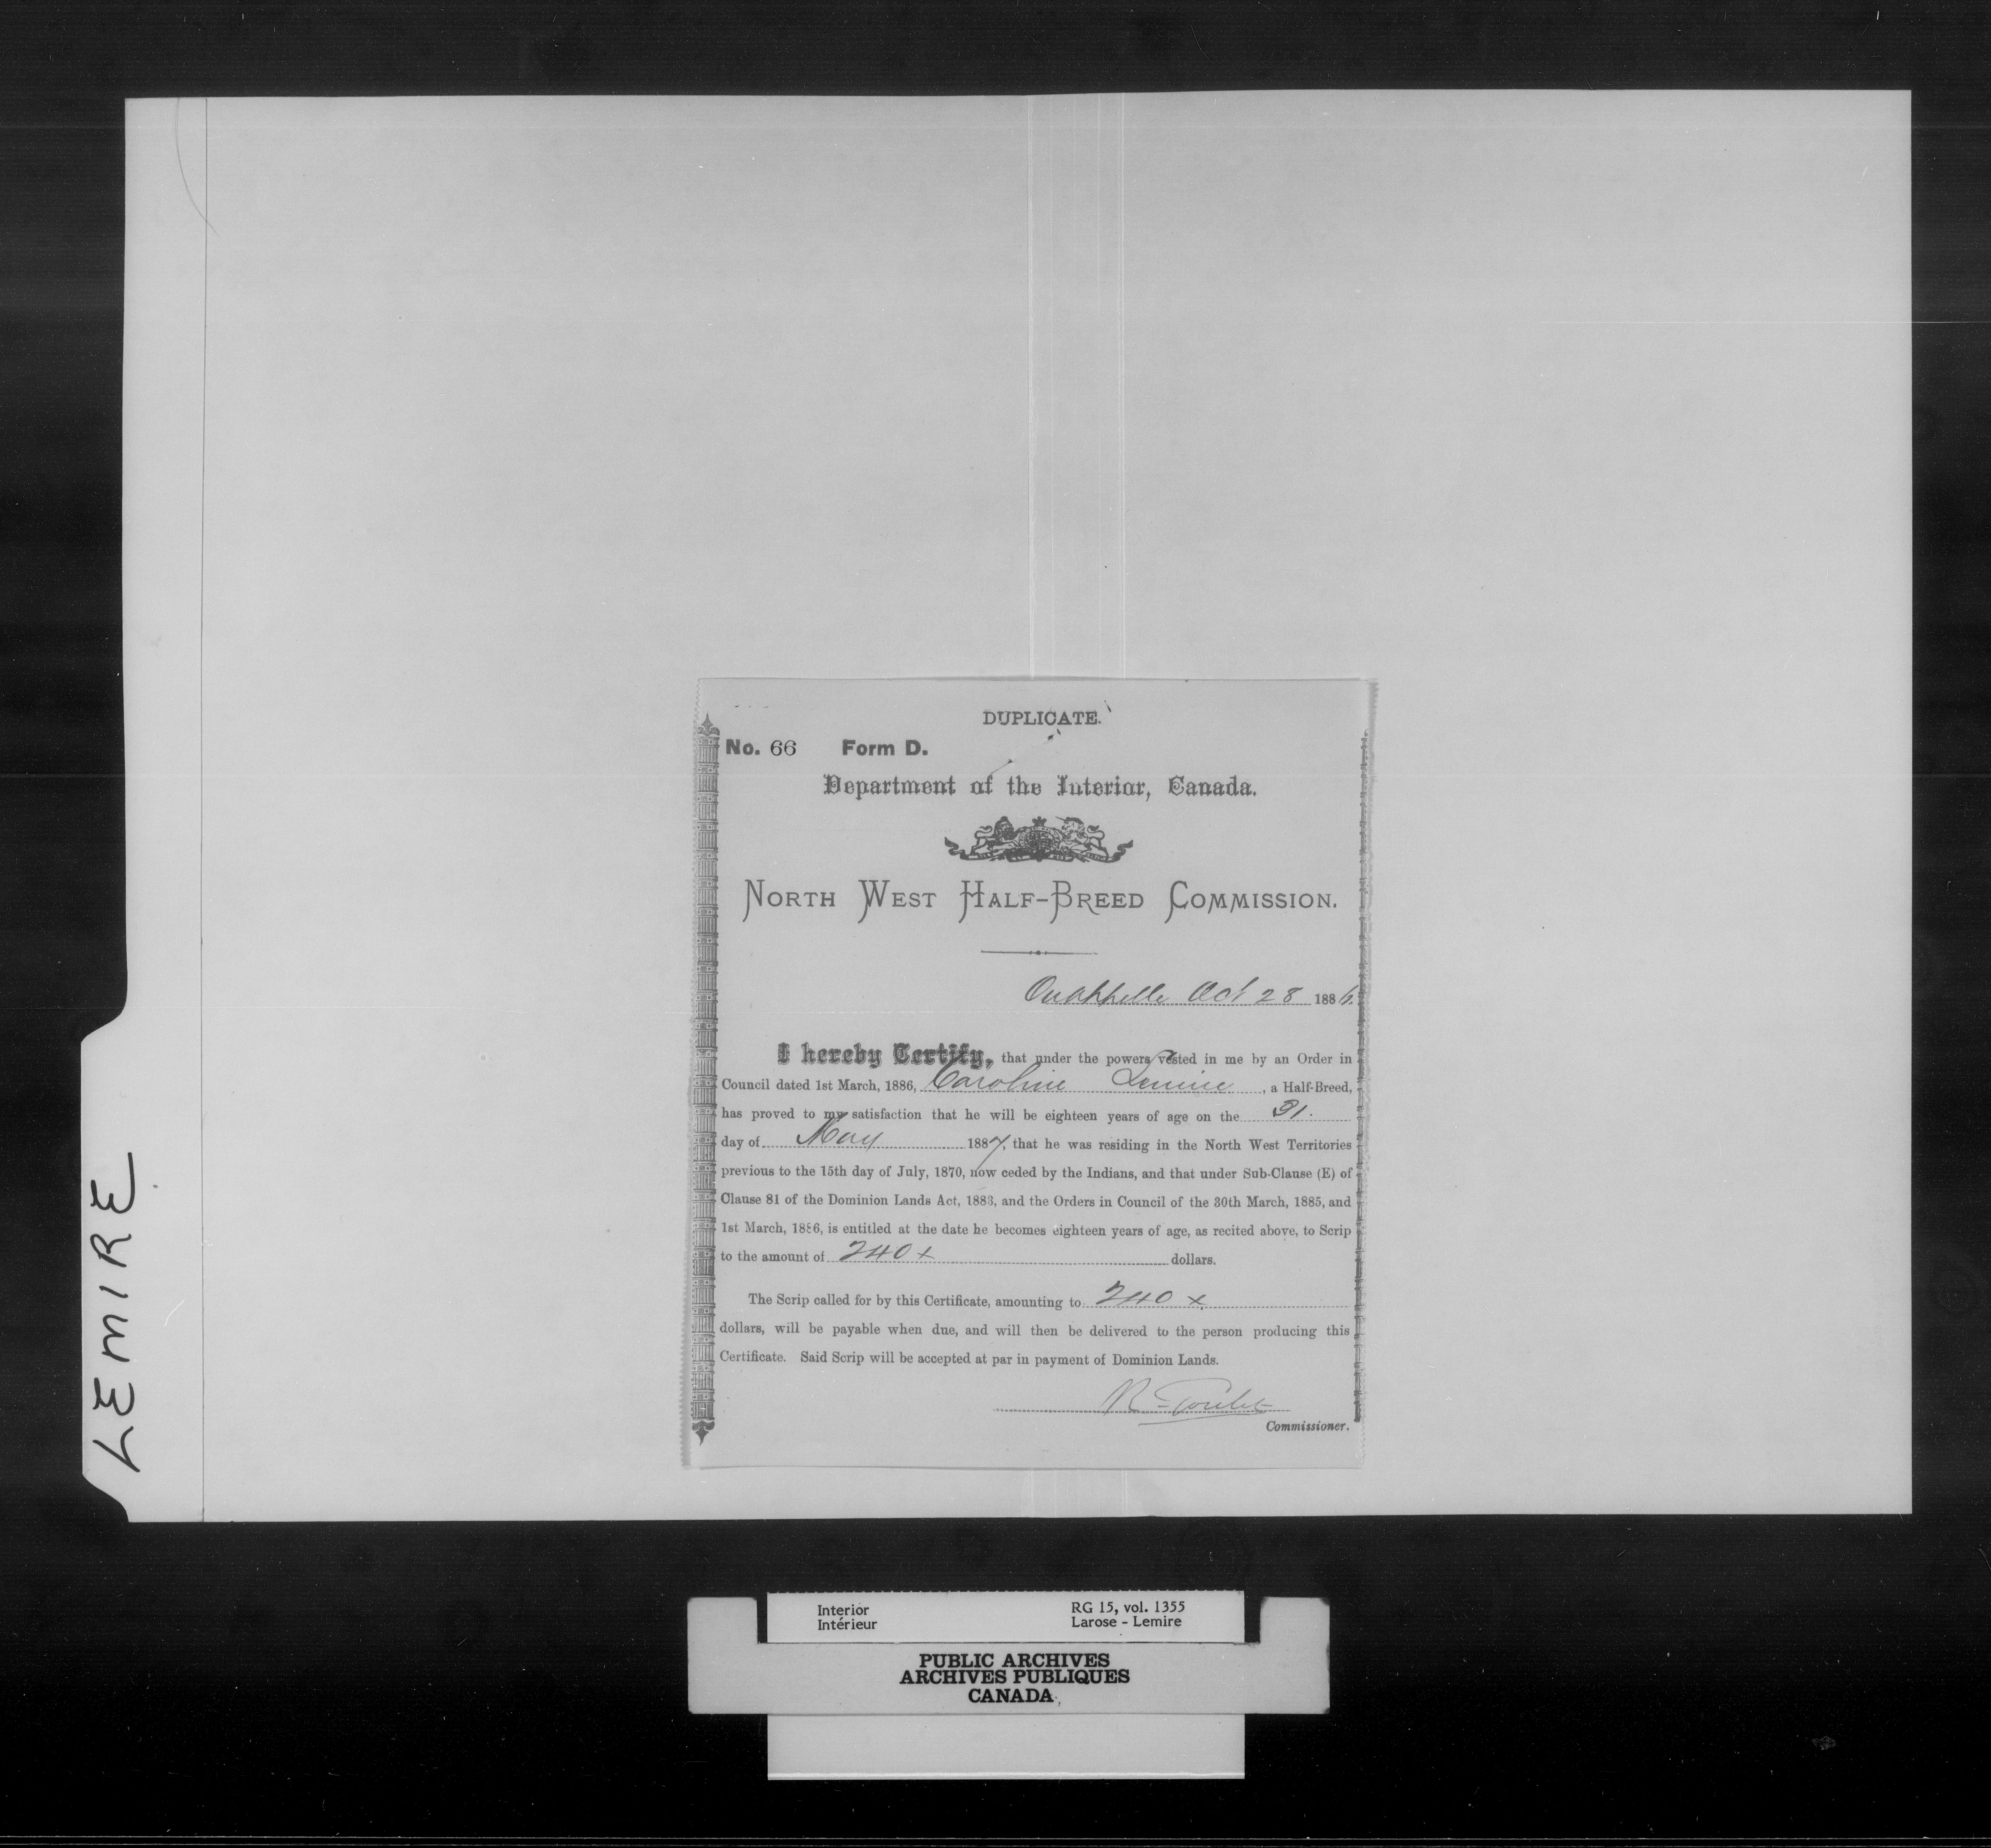 DUPLICATE.
No. 66 Form D.
Department of the Interior, Canada.
NORTH WEST HALF-BREED COMMISSION.
Qu'Appelle Oct 28 1886.
I hereby Certify, that under the powers vested in me by an Order in
Council dated 1st March, 1886, Caroline Lemire, a Half-Breed,
has proved to my satisfaction that he will be eighteen years of age on the 31.
day of May 1887, that he was residing in the North West Territories
previous to the 15th day of July, 1870, now ceded by the Indians, and that under Sub-Clause (E) of
Clause 81 of the Dominion Lands Act, 1883, and the Orders in Council of the 30th March, 1885, and
1st March, 1886, is entitled at the date he becomes eighteen years of age, as recited above, to Scrip
to the amount of 240 x dollars.
The Scrip called for by this Certificate, amounting to 240 x
dollars, will be payable when due, and will then be delivered to the person producing this
Certificate. Said Scrip will be accepted at par in payment of Dominion Lands.
R Goulet
Commissioner.
LEMIRE
Interior RG 15, vol. 1355
Intérieur Larose - Lemire
PUBLIC ARCHIVES
ARCHIVES PUBLIQUES
CANADA